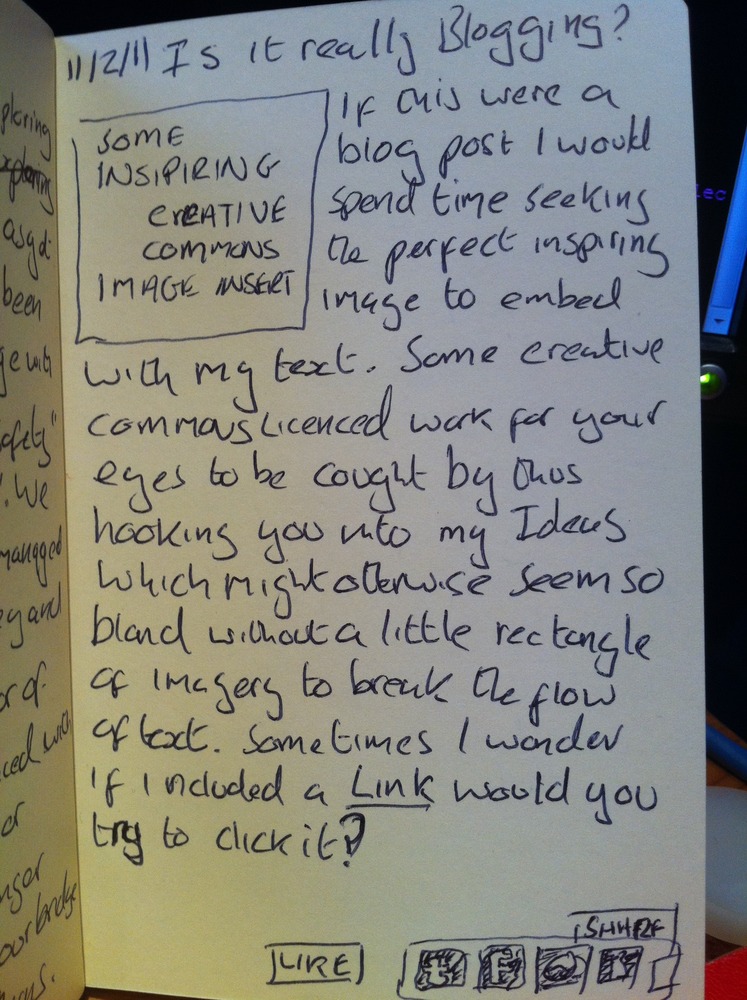 11/2/11 Is it really Blogging?
SOME
INSIPIRING
CREATIVE
COMMONS
IMAGE INSERT
If this were a
blog post I would
spend time seeking
the perfect inspiring
image to embed
with my text. Some creative
commons licenced work for your
eyes to be cought by thus
hooking you into my Ideas
which might otherwise seem so
bland without a little rectangle
of imagery to break the flow
of text. Sometimes I wonder
if I included a Link would you
try to click it?
SHARE
LIKE
ploring
asgd
been
ge with
afety"
. We
managed
ey and
or of
ced with
or
nger
our bridge